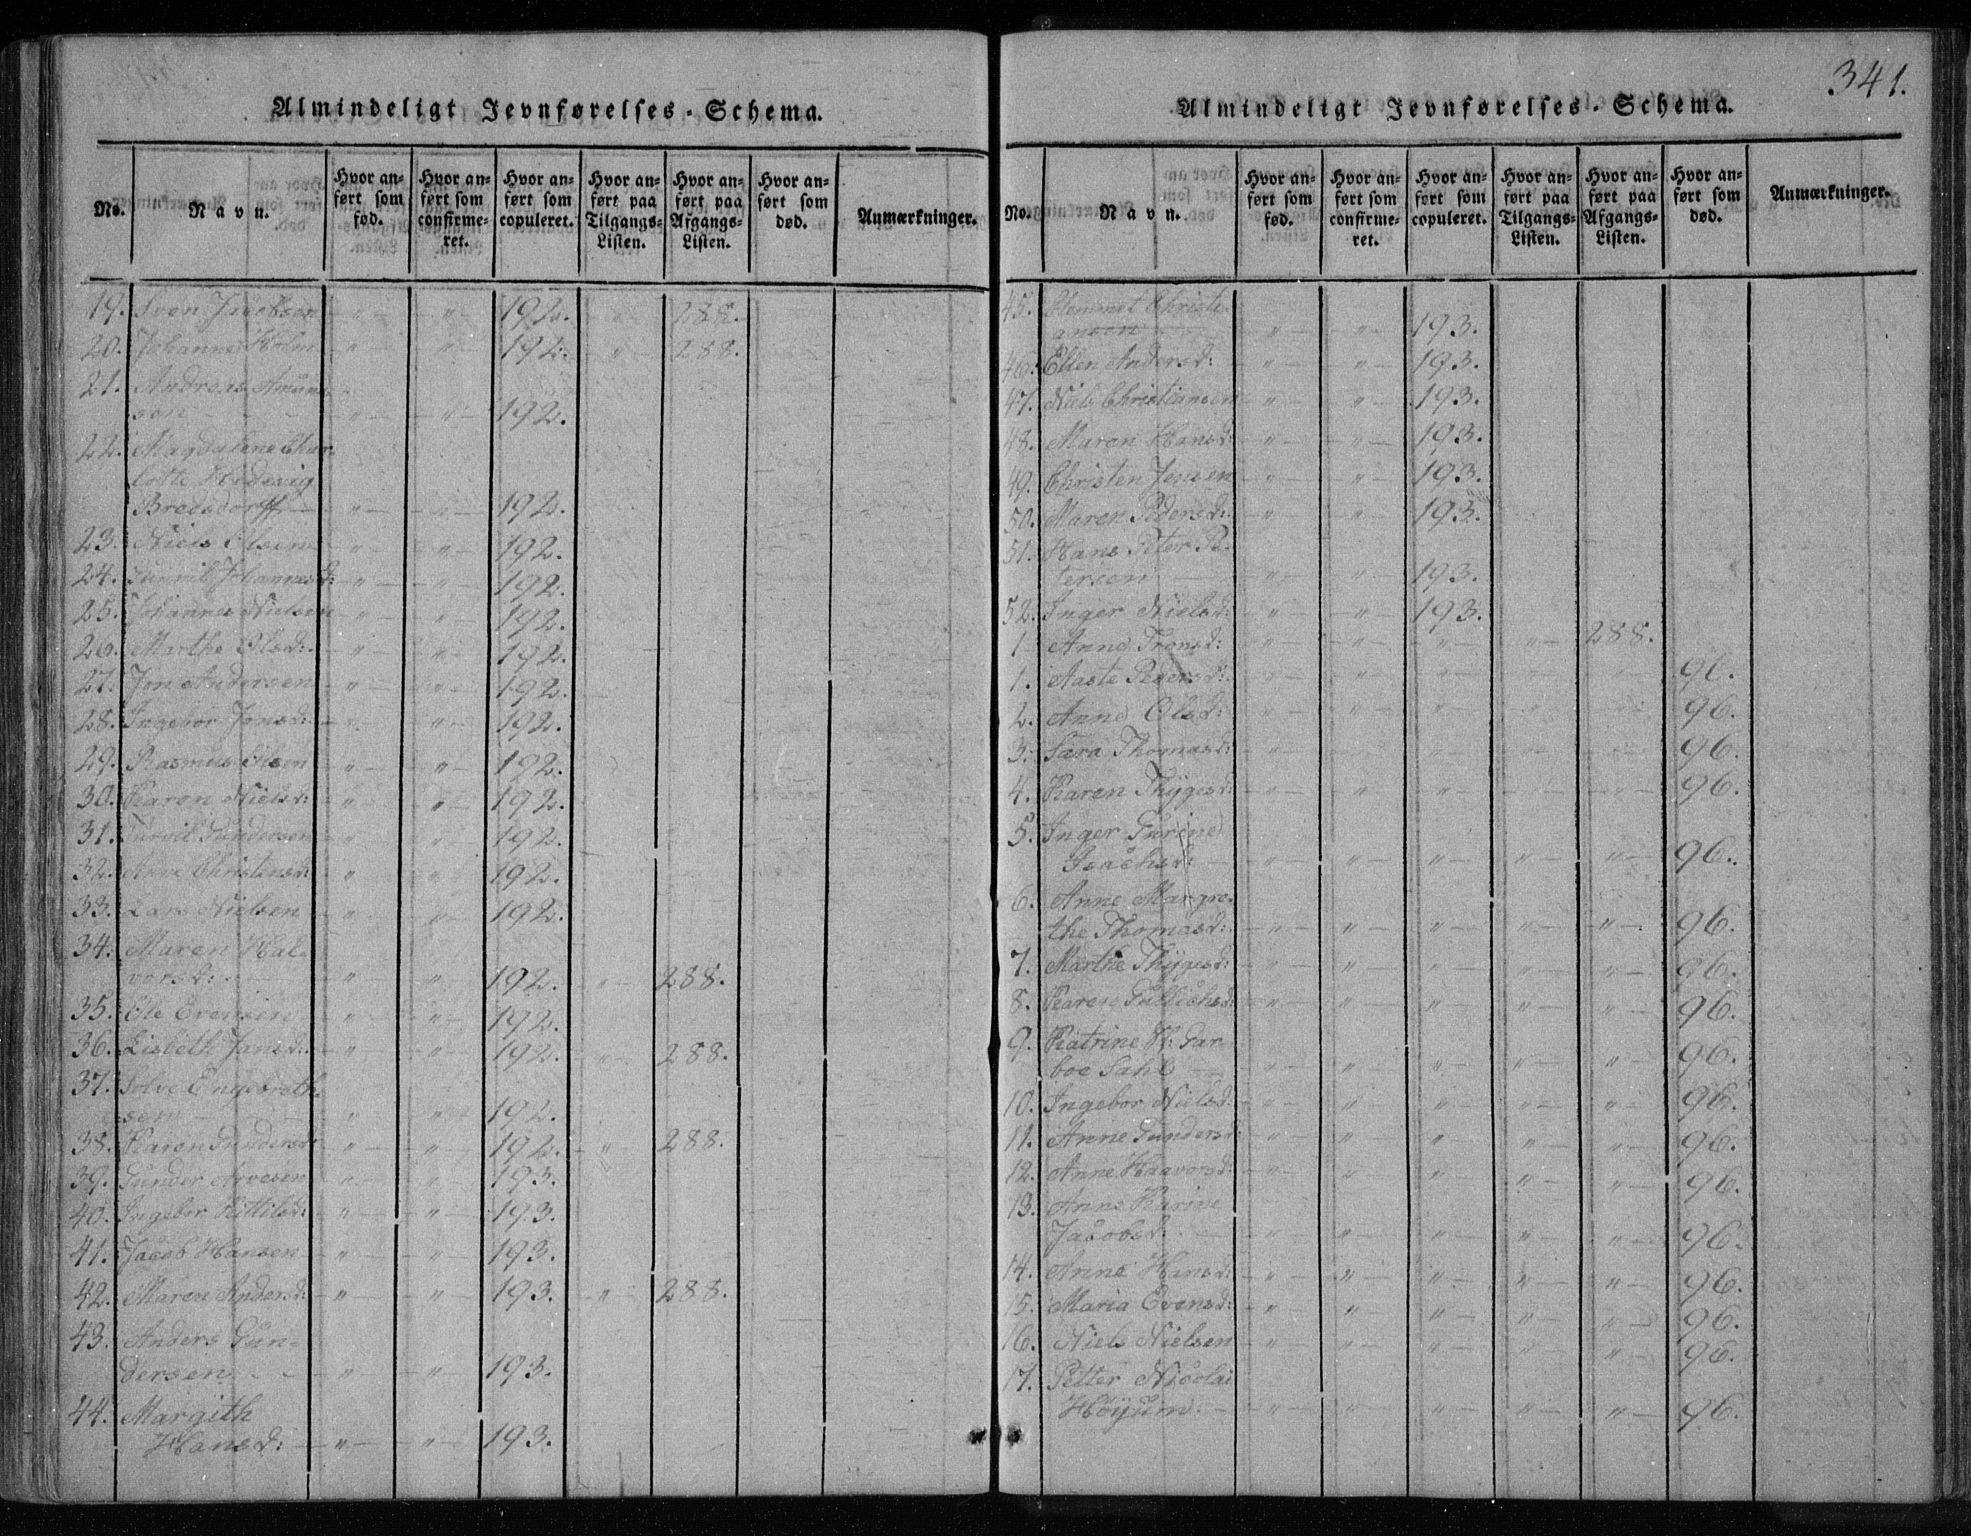 341.
Almindeligt Jevnførelses-Schema.
No. Navn. Hvor anført som fød. Hvor anført som confirmeret. Hvor anført som copuleret. Hvor anført paa Tilgangs-Listen. Hvor anført paa Afgangs-Listen. Hvor anført som død. Anmærkninger.
19. Sven Jacobsen - " - - " - 192. - " - 288.
20. Johannes Holm - " - - " - 192. - " - 288.
21. Andreas Amun-
sen - " - - " - 192.
22. Magdalene Char-
lotte Hedevig
Bredsdorff - " - - " - 192.
23. Niels Olsen - " - - " - 192.
24. Gunnil Johannesd: - " - - " - 192.
25. Johannes Nielsen - " - - " - 192.
26. Marthe Olsd: - " - - " - 192.
27. Jon Andersen - " - - " - 192.
28. Ingebor Jonsd: - " - - " - 192.
29. Rasmus Olsen - " - - " - 192.
30. Karen Nielsd: - " - - " - 192.
31. Gundersen - " - - " - 192.
32. Anne Christensd: - " - - " - 192.
33. Lars Nielsen - " - - " - 192.
34. Maren Hal-
vorsd: - " - - " - 192. - " - 288.
35. Ole Evensen - " - - " - 192.
36. Lisbeth Jansd: - " - - " - 192. - " - 288.
37. Solve Engebreth-
sen - " - - " - 192.
38. Karen Gundersd: - " - - " - 192. - " - 288.
39. Gunder Arvesen - " - - " - 193.
40. Ingebor Kittilsd: - " - - " - 193.
41. Jacob Hansen - " - - " - 193.
42. Maren Andersd: - " - - " - 193. - " - 288.
43. Anders Gun-
dersen - " - - " - 193.
44. Margith
Hansd: - " - - " - 193.
Almindeligt Jevnførelses-Schema.
No. Navn. Hvor anført som fød. Hvor anført som confirmeret. Hvor anført som copuleret. Hvor anført paa Tilgangs-Listen. Hvor anført paa Afgangs-Listen. Hvor anført som død. Anmærkninger.
45. Clemmet Christi-
ansen - " - - " - 193.
46. Ellen Andersd: - " - - " - 193.
47. Niels Christiansen - " - - " - 193.
48. Maren Hansd: - " - - " - 193.
49. Christen Jensen - " - - " - 193.
50. Maren Pedersd: - " - - " - 193.
51. Hans Peter Pe-
tersen - " - - " - 193.
52. Inger Nielsd: - " - - " - 193.
1. Anne Tronsd: - " - - " - - " - - " - 288.
1. Aaste Pedersd: - " - - " - - " - - " - - " - 96.
2. Anne Olsd: - " - - " - - " - - " - - " - 96.
3. Sara Thomasd: - " - - " - - " - - " - - " - 96.
4. Karen Thygesd: - " - - " - - " - - " - - " - 96.
5. Inger Gurine
Isachsd: - " - - " - - " - - " - - " - 96.
6. Anne Margre-
the Thomasd: - " - - " - - " - - " - - " - 96.
7. Marthe Thygesd: - " - - " - - " - - " - - " - 96.
8. Karen Gullichsd: - " - - " - - " - - " - - " - 96.
9. Katrine H: Gar-
boe Dahl - " - - " - - " - - " - - " - 96.
10. Ingebor Nielsd: - " - - " - - " - - " - - " - 96.
11. Anne Gundersd: - " - - " - - " - - " - - " - 96.
12. Anne Haavorsd: - " - - " - - " - - " - - " - 96.
13. Anne Karine
Jacobsd: - " - - " - - " - - " - - " - 96.
14. Anne Hansd: - " - - " - - " - - " - - " - 96.
15. Maria Evensd: - " - - " - - " - - " - - " - 96.
16. Niels Nielsen - " - - " - - " - - " - - " - 96.
17. Petter Nicolai
Höyum - " - - " - - " - - " - - " - 96.